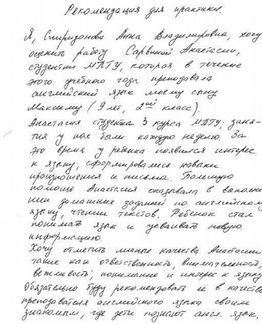 Рекомендация для практики.
Я, Спиридонова Анна Владимировна, хочу
оценить работу Сарвиной Анастасии,
студентки МДТУ, которая в течение
этого учебного года преподавала
английский язык моему сыну
Максиму (9 лет, 2ой класс).
Анастасия студентка 3 курса МДТУ. заня-
тия у нас были каждую неделю. За
это время у ребенка появился интерес
к языку, сформировался навыки
произношения и письма. Большую
помощь Анастасия оказывала в выполне-
нии домашних заданий по английскому
языку, чтении текстов. Ребенок стал
понимать язык и усваивать новую
информацию.
Хочу отметить личные качества Анастасии
такие как ответственность, внимательность,
вежливость, понимание и интерес к языку
Обязательно буду рекомендовать её в качестве
преподавателя английского языка своим
знакомым, где дети изучают англ. язык.